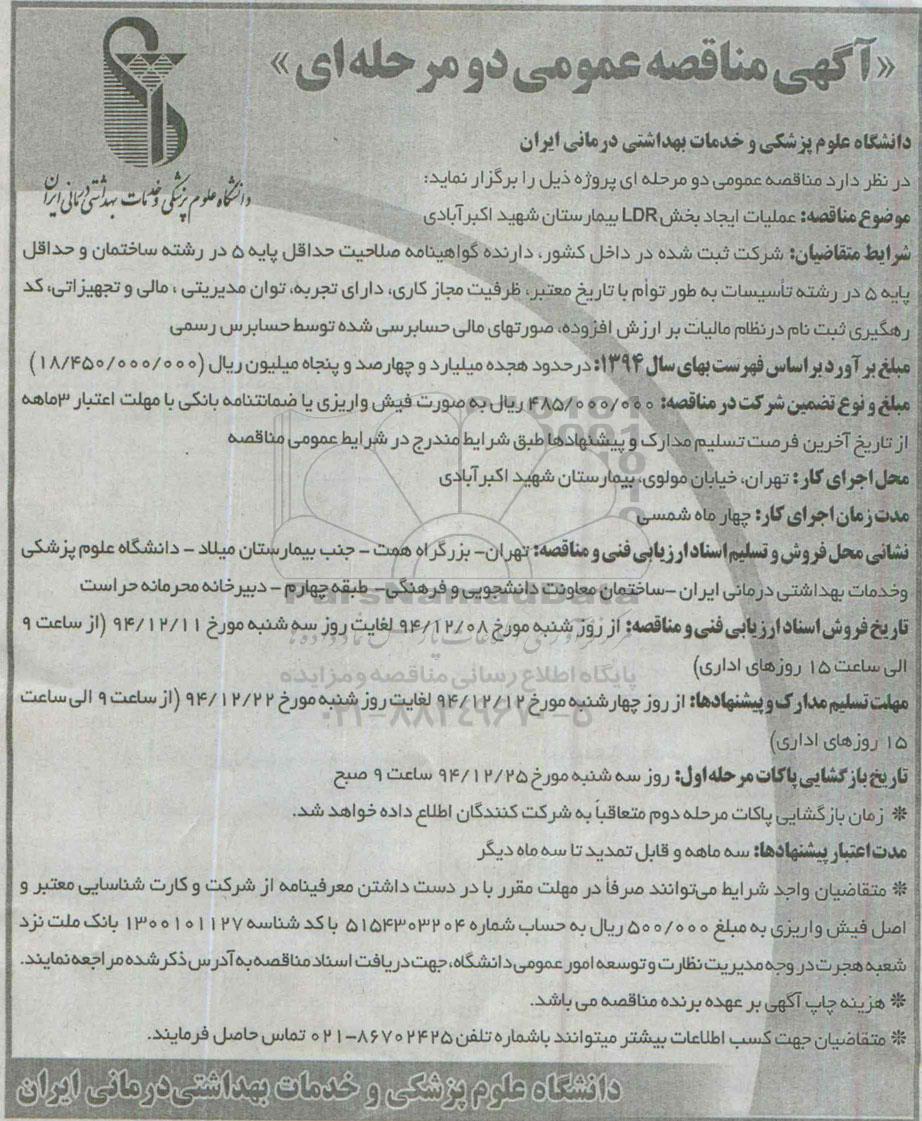 «آگهی مناقصه عمومی دو مرحله ای»
دانشگاه علوم پزشکی و خدمات بهداشتی درمانی ایران
دانشگاه علوم پزشکی و خدمات بهداشتی درمانی ایران
در نظر دارد مناقصه عمومی دو مرحله ای پروژه ذیل را برگزار نماید:
موضوع مناقصه: عملیات ایجاد بخش LDR بیمارستان شهید اکبرآبادی
شرایط متقاضیان: شرکت ثبت شده در داخل کشور، دارنده گواهینامه صلاحیت حداقل پایه ۵ در رشته ساختمان و حداقل
پایه ۵ در رشته تأسیسات به طور توأم با تاریخ معتبر، ظرفیت مجاز کاری، دارای تجربه، توان مدیریتی ، مالی و تجهیزاتی، کد
رهگیری ثبت نام درنظام مالیات بر ارزش افزوده، صورتهای مالی حسابرسی شده توسط حسابرس رسمی
مبلغ برآورد براساس فهرست بهای سال ۱۳۹۴: درحدود هجده میلیارد و چهارصد و پنجاه میلیون ریال (۱۸/۴۵۰/۰۰۰/۰۰۰)
مبلغ و نوع تضمین شرکت در مناقصه: ۴۸۵/۰۰۰/۰۰۰ ریال به صورت فیش واریزی یا ضمانتنامه بانکی با مهلت اعتبار ۳ماهه
از تاریخ آخرین فرصت تسلیم مدارک و پیشنهادها طبق شرایط مندرج در شرایط عمومی مناقصه
محل اجرای کار: تهران، خیابان مولوی، بیمارستان شهید اکبرآبادی
مدت زمان اجرای کار: چهار ماه شمسی
نشانی محل فروش و تسلیم اسناد ارزیابی فنی و مناقصه: تهران- بزرگراه همت - جنب بیمارستان میلاد - دانشگاه علوم پزشکی
وخدمات بهداشتی درمانی ایران -ساختمان معاونت دانشجویی و فرهنگی- طبقه چهارم - دبیرخانه محرمانه حراست
ParsNamadData
تاریخ فروش اسناد ارزیابی فنی و مناقصه: از روز شنبه مورخ ۹۴/۱۲/۰۸ لغایت روز سه شنبه مورخ ۹۴/۱۲/۱۱ (از ساعت ۹
الی ساعت ۱۵ روزهای اداری)
پایگاه اطلاع رسانی مناقصه و مزایده
مهلت تسلیم مدارک و پیشنهادها: از روز چهارشنبه مورخ ۹۴/۱۲/۱۲ لغایت روز شنبه مورخ ۹۴/۱۲/۲۲ (از ساعت ۹ الی ساعت
۱۵ روزهای اداری)
۰۲۱-۸۸۳۴۹۶۷۰-۵
تاریخ بازگشایی پاکات مرحله اول: روز سه شنبه مورخ ۹۴/۱۲/۲۵ ساعت ۹ صبح
❊ زمان بازگشایی پاکات مرحله دوم متعاقباً به شرکت کنندگان اطلاع داده خواهد شد.
مدت اعتبار پیشنهادها: سه ماهه و قابل تمدید تا سه ماه دیگر
❊ متقاضیان واجد شرایط می‌توانند صرفاً در مهلت مقرر با در دست داشتن معرفینامه از شرکت و کارت شناسایی معتبر و
اصل فیش واریزی به مبلغ ۵۰۰/۰۰۰ ریال به حساب شماره ۵۱۵۴۳۰۳۲۰۴ با کد شناسه ۱۳۰۰۱۰۱۱۲۷ بانک ملت نزد
شعبه هجرت در وجه مدیریت نظارت و توسعه امور عمومی دانشگاه، جهت دریافت اسناد مناقصه به آدرس ذکر شده مراجعه نمایند.
❊ هزینه چاپ آگهی بر عهده برنده مناقصه می باشد.
❊ متقاضیان جهت کسب اطلاعات بیشتر میتوانند باشماره تلفن ۸۶۷۰۲۴۲۵-۰۲۱ تماس حاصل فرمایند.
دانشگاه علوم پزشکی و خدمات بهداشتی درمانی ایران